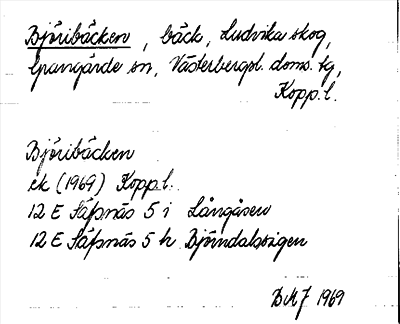 Björibäcken, bäck, Ludvika skog,
Grangärde sn, Västerbergsl. doms. tg,
Kopp. l.
Björibäcken
ek (1969) Kopp.l.
12 E Säfsnäs 5 i Långåsen
12 E Säfsnäs 5 h Björndalsstigen
1969